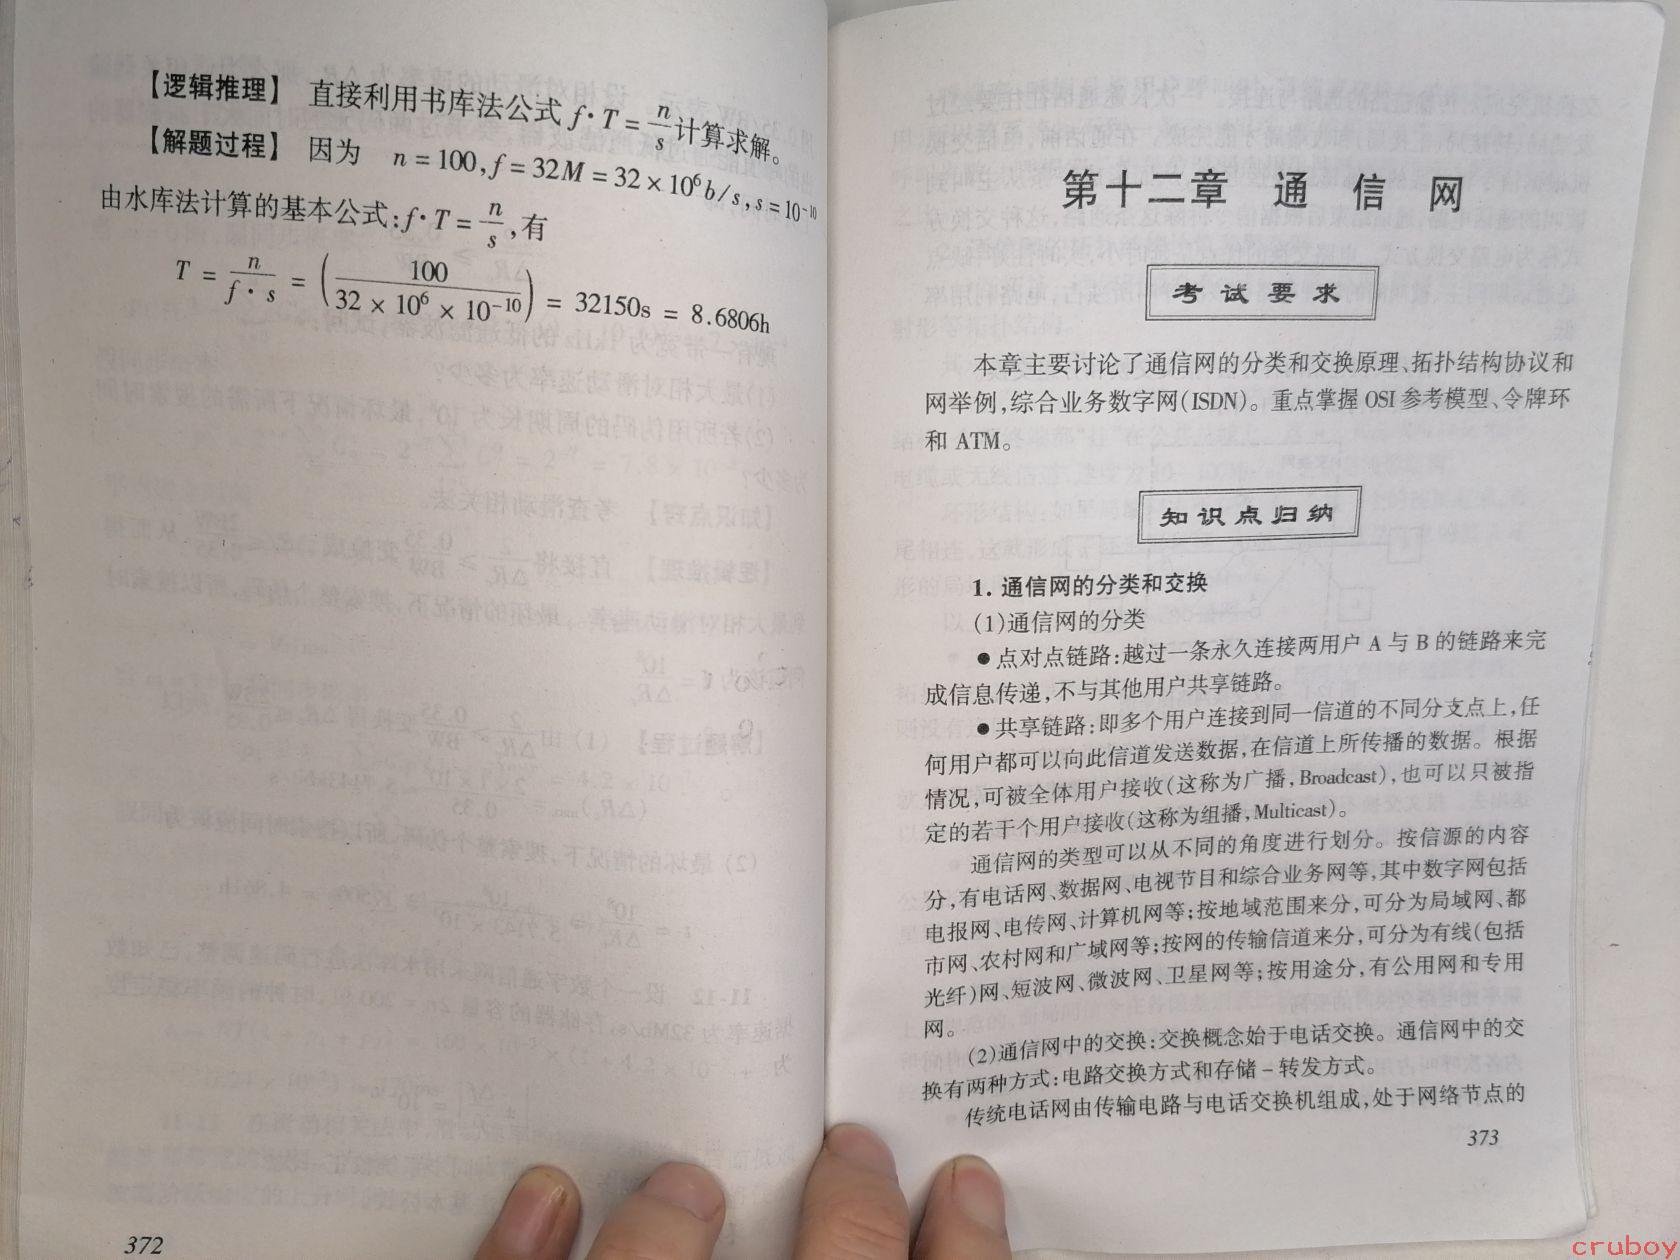 【逻辑推理】 直接利用书库法公式 f·T = n/s 计算求解。
【解题过程】 因为 n = 100, f = 32M = 32 × 10⁶ b/s, s = 10⁻¹⁰
由水库法计算的基本公式:f·T = n/s ,有
T = n/(f·s) = (100/(32 × 10⁶ × 10⁻¹⁰)) = 32150s = 8.6806h
372
第十二章 通 信 网
考试要求
本章主要讨论了通信网的分类和交换原理、拓扑结构协议和
网举例,综合业务数字网(ISDN)。重点掌握 OSI 参考模型、令牌环
和 ATM。
知识点归纳
1. 通信网的分类和交换
(1)通信网的分类
●点对点链路:越过一条永久连接两用户 A 与 B 的链路来完
成信息传递,不与其他用户共享链路。
●共享链路:即多个用户连接到同一信道的不同分支点上,任
何用户都可以向此信道发送数据,在信道上所传播的数据。根据
情况,可被全体用户接收(这称为广播,Broadcast),也可以只被指
定的若干个用户接收(这称为组播,Multicast)。
通信网的类型可以从不同的角度进行划分。按信源的内容
分,有电话网、数据网、电视节目和综合业务网等,其中数字网包括
电报网、电传网、计算机网等;按地域范围来分,可分为局域网、都
市网、农村网和广域网等;按网的传输信道来分,可分为有线(包括
光纤)网、短波网、微波网、卫星网等;按用途分,有公用网和专用
网。
(2)通信网中的交换:交换概念始于电话交换。通信网中的交
换有两种方式:电路交换方式和存储－转发方式。
传统电话网由传输电路与电话交换机组成,处于网络节点的
373
cruboy